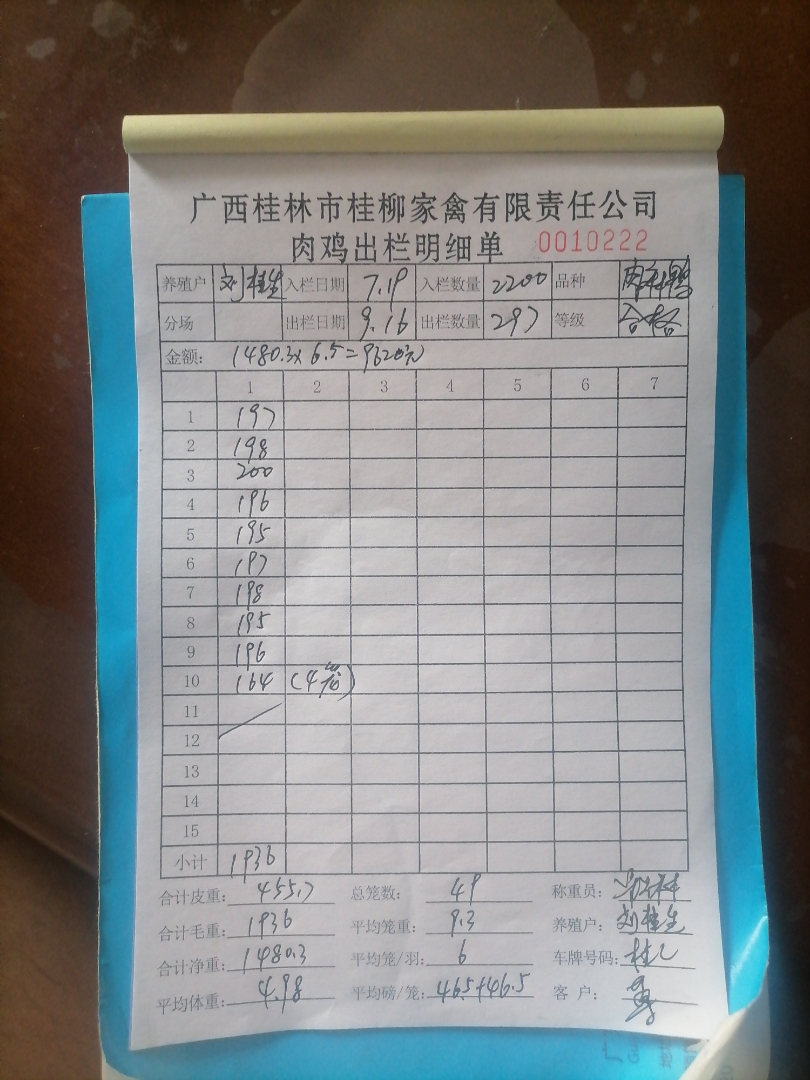 广西桂林市桂柳家禽有限责任公司
肉鸡出栏明细单 0010222
养殖户 刘桂生 入栏日期 7.19 入栏数量 2200 品种
分场 出栏日期 9.16 出栏数量 297 等级 合格
金额: 1480.3×6.5=9620元
1 2 3 4 5 6 7
1 197
2 198
3 200
4 196
5 195
6 197
7 198
8 195
9 196
10 164 (4笼)
11
12
13
14
15
小计 1936
合计皮重: 455.7 总笼数: 49 称重员:
合计毛重: 1936 平均笼重: 9.3 养殖户: 刘桂生
合计净重: 1480.3 平均笼/羽: 6 车牌号码: 桂C
平均体重: 4.98 平均磅/笼: 46.5+46.5 客 户: